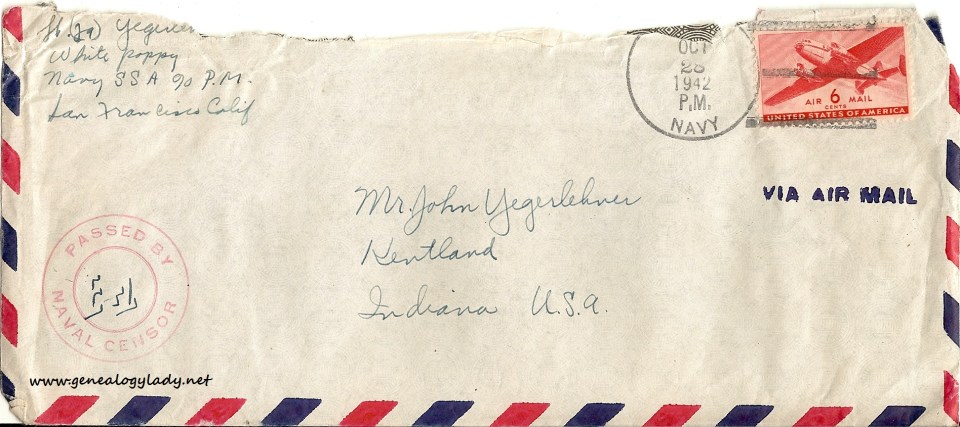 Lt. (jg) Yegerle
White Poppy
Navy SSA 90 P.M.
San Francisco Calif
OCT
28
1942
P.M.
NAVY
AIR 6 MAIL
CENTS
UNITED STATES OF AMERICA
VIA AIR MAIL
Mr. John Yegerlehner
Kentland
Indiana U.S.A.
PASSED BY
NAVAL CENSOR
www.genealogylady.net